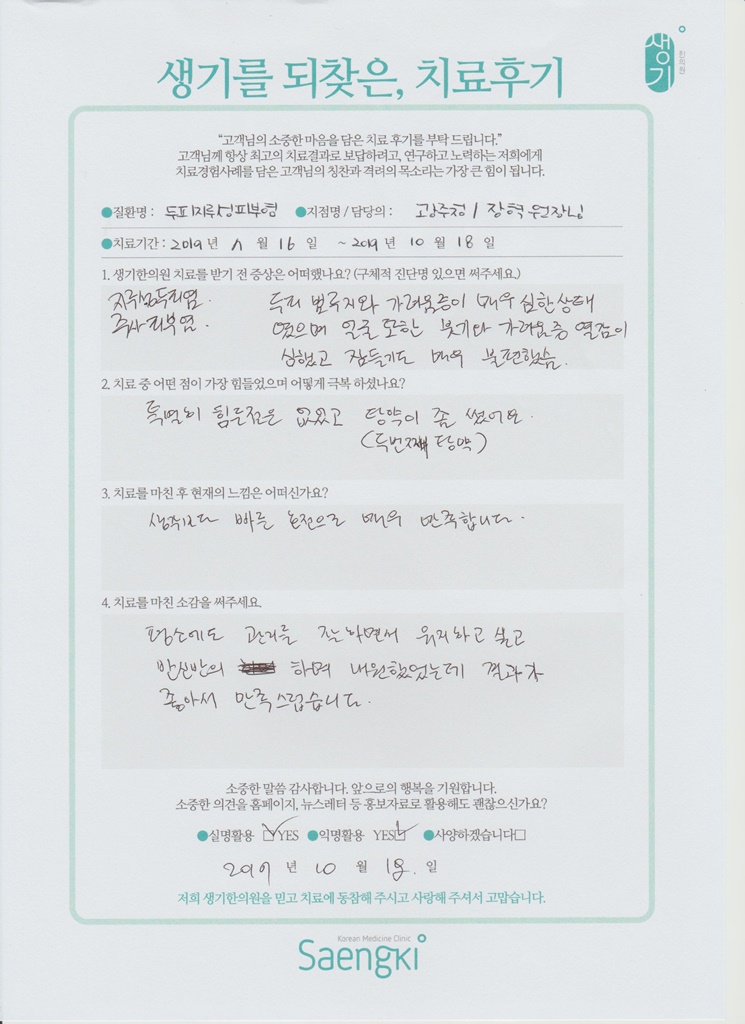 생기
한의원
생기를 되찾은, 치료후기
"고객님의 소중한 마음을 담은 치료 후기를 부탁 드립니다."
고객님께 항상 최고의 치료결과로 보답하려고, 연구하고 노력하는 저희에게
치료경험사례를 담은 고객님의 칭찬과 격려의 목소리는 가장 큰 힘이 됩니다.
●질환명 : 두피지루성피부염 ●지점명 / 담당의 : 광주점 / 장혁 원장님
●치료기간 : 2019 년 월 16 일 ~ 2019 년 10 월 18 일
1. 생기한의원 치료를 받기 전 증상은 어떠했나요? (구체적 진단명 있으면 써주세요.)
지루성두피염. 두피 벌류지와 가려움증이 매우 심한상태
주사피부염. 였으며 얼굴 또한 붓기와 가려움증 열감이
심했고 잠들기도 매우 불편했슴.
2. 치료 중 어떤 점이 가장 힘들었으며 어떻게 극복 하셨나요?
특별히 힘든점은 없었고 탕약이 좀 썼어요.
(두번째 탕약)
3. 치료를 마친 후 현재의 느낌은 어떠신가요?
생각보다 빠른 호전으로 매우 만족합니다.
4. 치료를 마친 소감을 써주세요.
평소에도 관리를 잘 하면서 유지하고 싶고
반신반의 하며 내원했었는데 결과가
좋아서 만족스럽습니다.
소중한 말씀 감사합니다. 앞으로의 행복을 기원합니다.
소중한 의견을 홈페이지, 뉴스레터 등 홍보자료로 활용해도 괜찮으신가요?
●실명활용 ☑YES ●익명활용 YES☑ ●사양하겠습니다□
2019 년 10 월 18. 일
저희 생기한의원을 믿고 치료에 동참해 주시고 사랑해 주셔서 고맙습니다.
Korean Medicine Clinic
Saengki